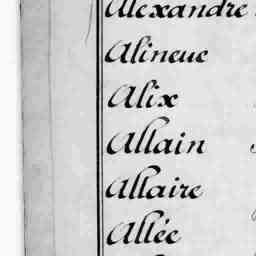 Alexandre
Alineuc
Alix
Allain
Allaire
Allée